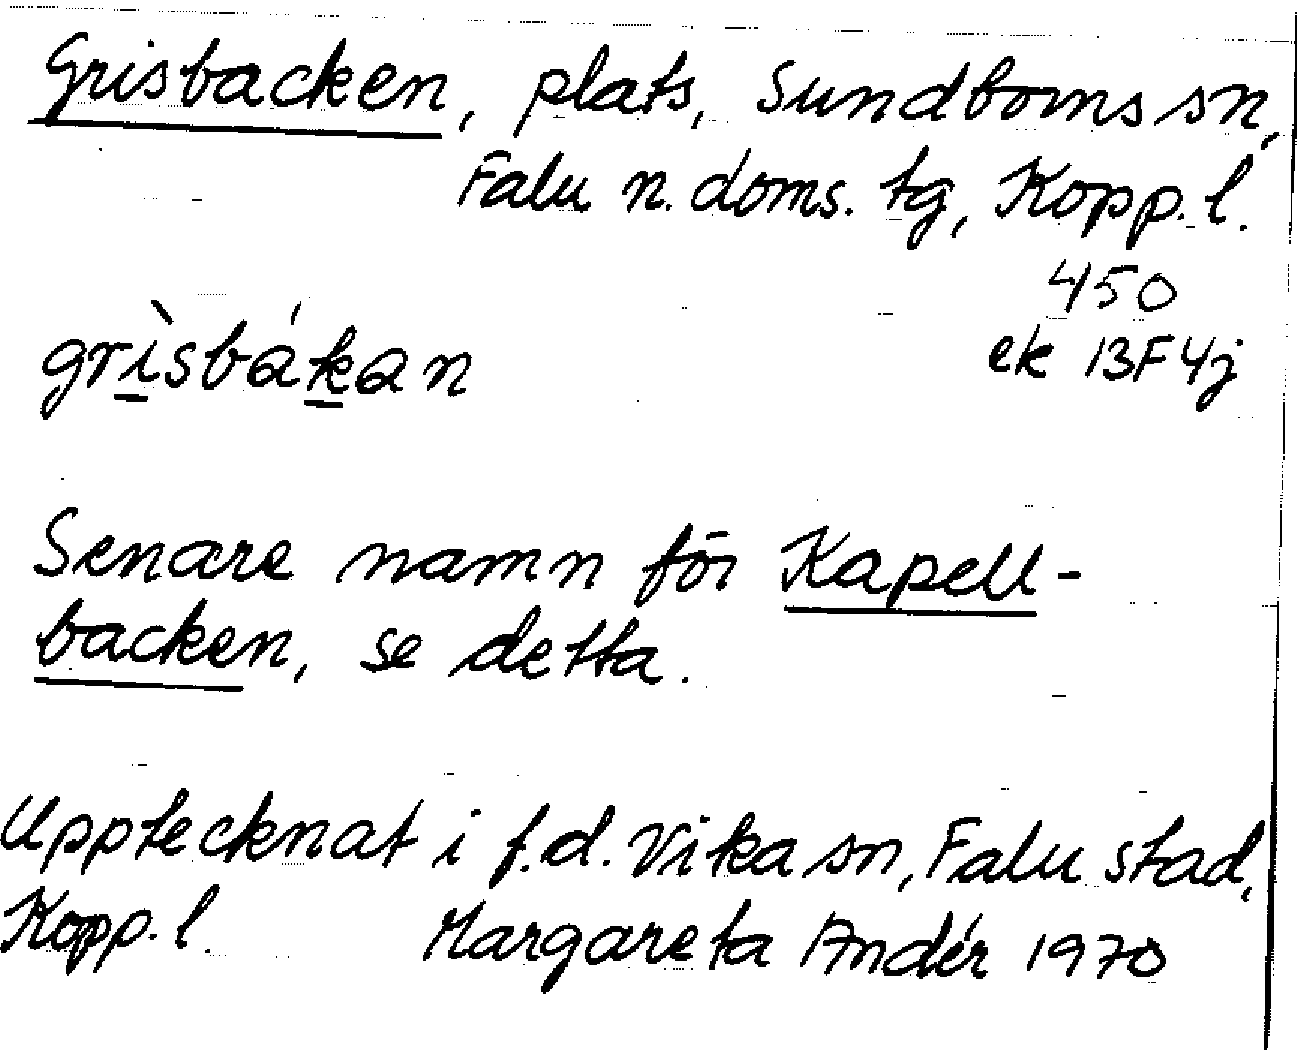 Grisbacken, plats, Sundborns sn,
Falu n. doms. tg, Kopp. l.
450
grìsbákan
ek 13F4j
Senare namn för Kapell-
backen, se detta.
Upptecknat i f.d. Vika sn, Falu stad,
Kopp. l. Margareta Andér 1970